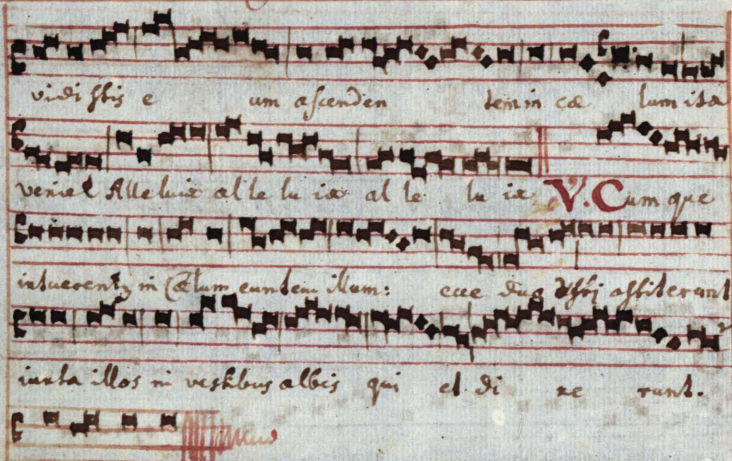 vidistis e um ascenden tem in cæ lum ita
veniet Alleluia al le lu ia al le lu ia V. Cum que
intuerentur in Cælum euntem illum: ecce duo astiterunt
iuxta illos in vestibus albis qui et di xe runt.